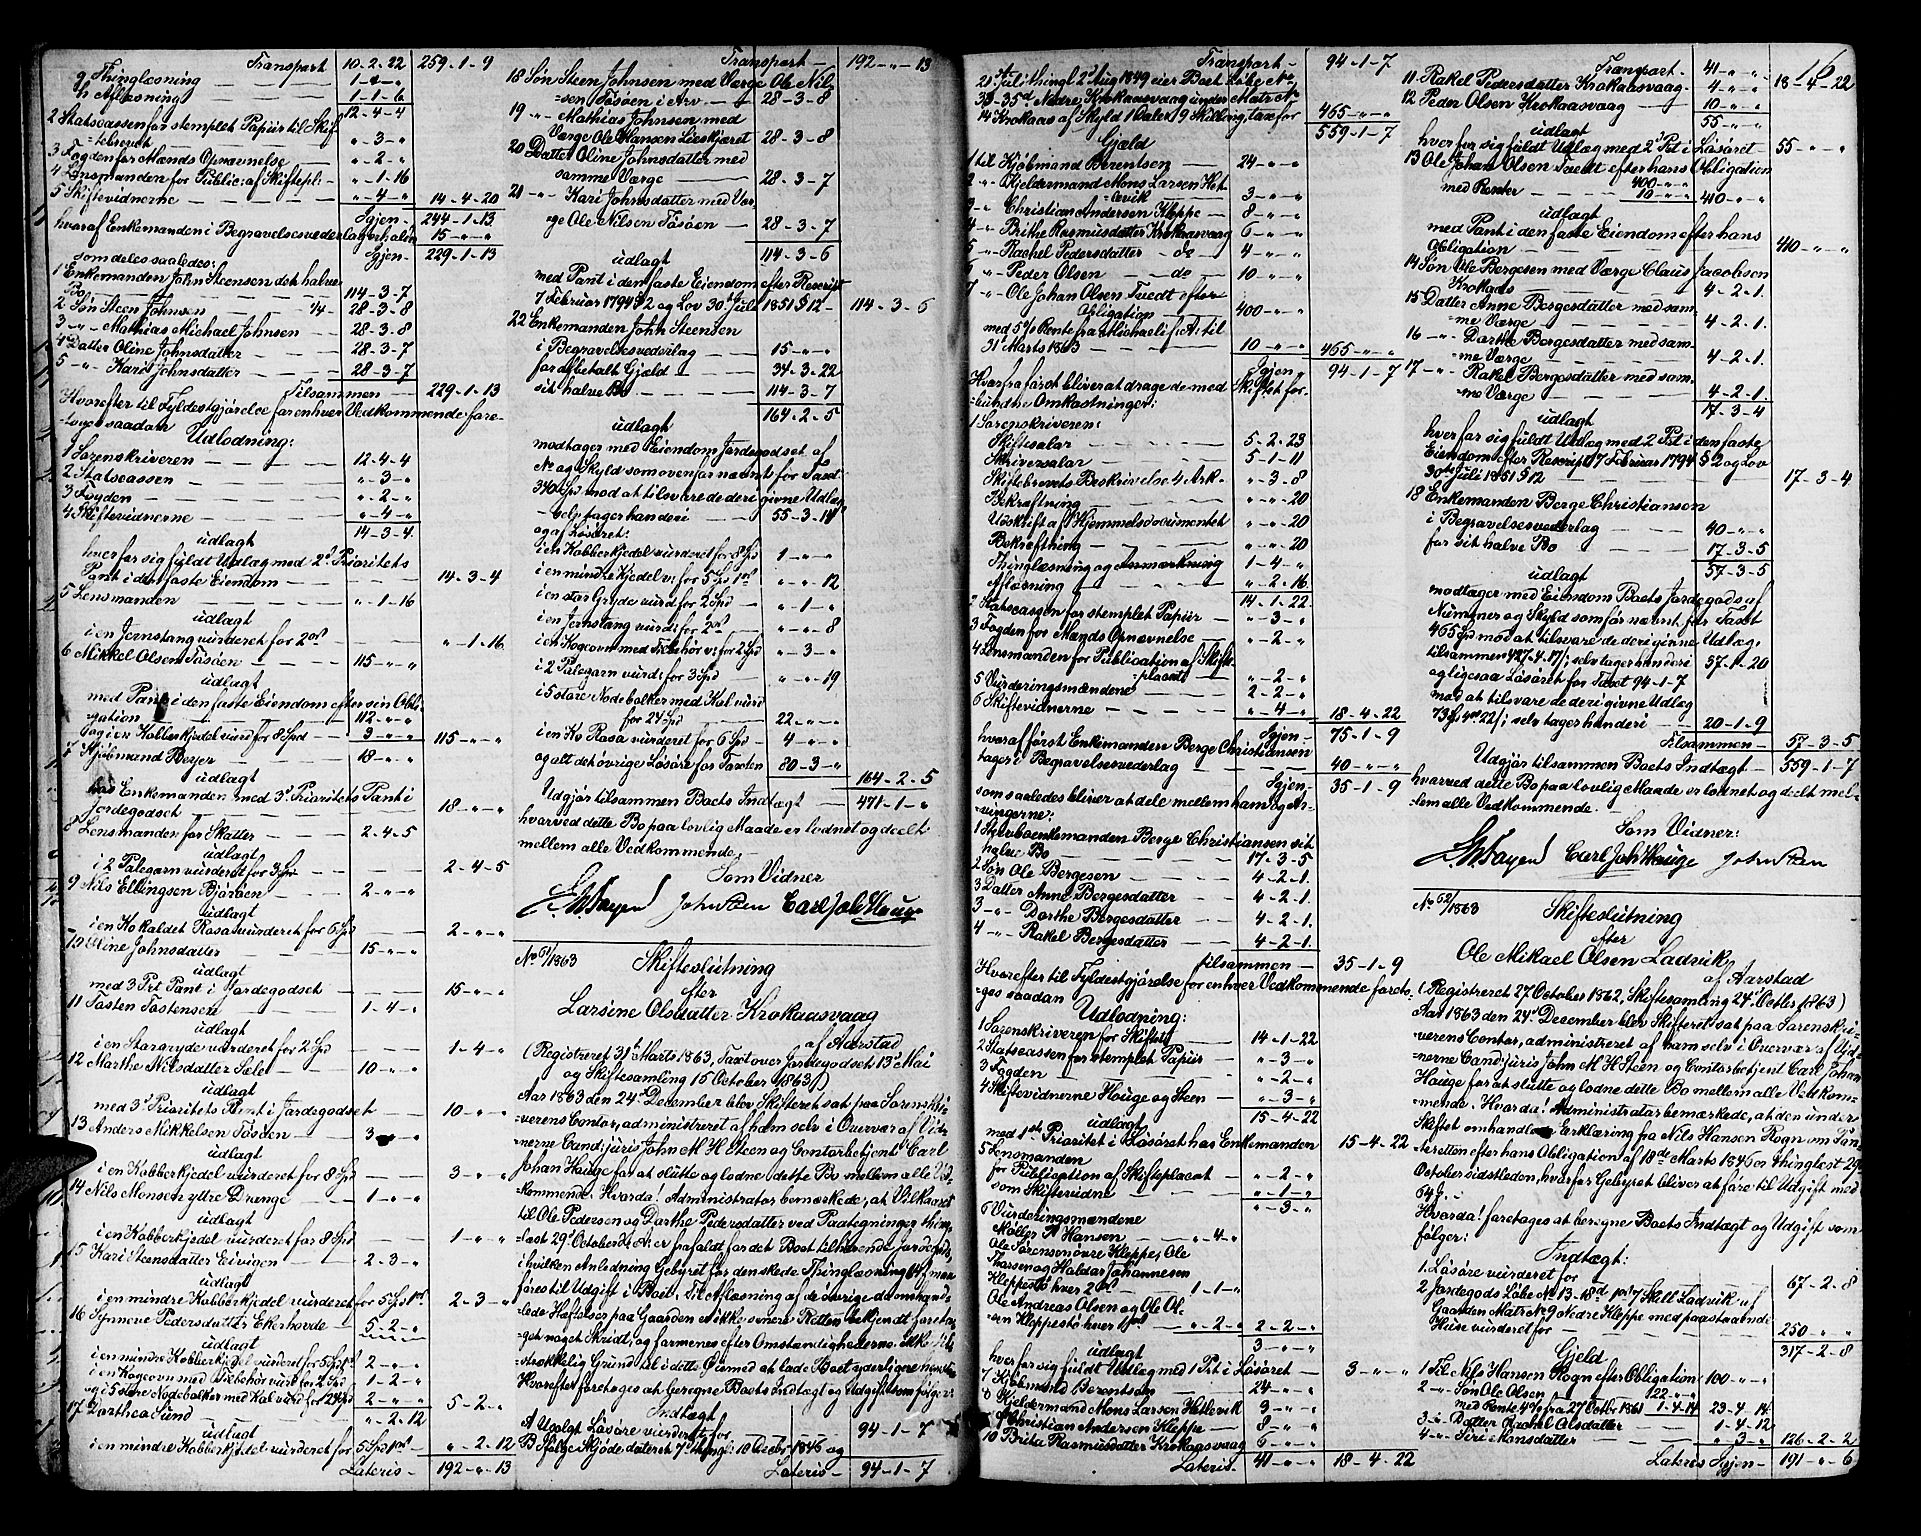 Transport 10-2-22 259-1-9
g Thinglæsning 1-"-"
h Aflæsning 1-1-6
12-4-4
2 Statscassen for stemplet Papiir til Skif-
tebrevet "-3-"
3 Fogden for Mænds Opnævnelse "-2-"
4 Lensmanden for Public: af Skiftepl: "-1-16
5 Skiftevidnerne "-4-" 14-4-20
Igjen 244-1-13
hvoraf Enkemanden i Begravelsesvederlag 15-"-"
som deles saaledes: Igjen 229-1-13
1 Enkemanden John Steensen det halve
Bo 114-3-7
2 Søn Steen Johnsen 28-3-8
3 -"- Mathias Michael Johnsen 28-3-8
4 Datter Oline Johnsdatter 28-3-7
5 -"- Kari Johnsdatter 28-3-7
Tilsammen 229-1-13
Hvorefter til Fyldestgjørelse for enhver Vedkommende fore-
toges saadan Udlodning:
1 Sorenskriveren 12-4-4
2 Statscassen "-3-"
3 Fogden "-2-"
4 Skiftevidnerne "-4-"
udlagt 14-3-4
hver for sig fuldt Udlæg med 2d Prioritets
Pant i den faste Eiendom 14-3-4
5 Lensmanden "-1-16
udlagt
i en Jernstang vurderet for 2ort "-1-16
6 Mikkel Olsen Tøsøen 115-"-"
udlagt
med Pant i den faste Eiendom efter sin Obli-
gation 112-"-"
og i en Kobberkjedel vurd for 8 Spd 3-"-" 115-"-"
7 Kjøbmand Beyer 18-"-"
udlagt
hos Enkemanden med 3d Prioritets Pant i
Jordegodset 18-"-"
8 Lensmanden for Skatter 2-4-5
udlagt
i 2 Palegarn vurderet for 3 Spd 2-4-5
9 Nils Ellingsen Bjørøen 2-"-"
udlagt
i en Ko kaldet Rosa vurderet for 6 Spd 2-"-"
10 Oline Johnsdatter 15-"-"
udlagt
med 3 Prit Pant i Jordegodset 15-"-"
11 Tosten Tostensen 1-4-"
udlagt
i en Stor gryde vurderet for 2 Spd 1-4-"
12 Marthe Nilsdatter Søle 10-"-"
udlagt
med 3d Prioritets Pant i Jordegodset 10-"-"
13 Anders Mikkelsen Tøsøen 3-"-"
udlagt
i en Kobberkjedel vurderet for 8 Spd 3-"-"
14 Nils Monsen yttre Drange 1-"-"
udlagt
i en Kobberkjedel vurderet for 8 Spd 1-"-"
15 Kari Steensdatter Eivigen 2-3-"
udlagt
i en mindre Kobberkjedel vurderet for 5 Spd 1ort 2-3-"
16 Synnove Pedersdatter Ekerhovde 5-2-"
udlagt
i en mindre Kobberkjedel vurderet for 5 Spd 1ort 2-"-"
i en Kogeovn med Tilbehør vurd for 2 Spd 1-2-"
og i 5 store Nodebolker med Kal vurd for 24 Spd 2-"-" 5-2-"
17 Dorthea Lund "-2-12
udlagt
i en mindre Kobberkjedel vurderet for 5 Spd 1ort "-2-12
Lateris 192-"-13
Transport 192-"-13
18 Søn Steen Johnsen med Værge Ole Nil-
sen Tøsøen i Arv 28-3-8
19 -"- Mathias Johnsen med
Værge Ole Hansen Lieskjæret 28-3-8
20 Datter Oline Johnsdatter med
samme Værge 28-3-7
21 -"- Kari Johnsdatter med Vær-
ge Ole Nilsen Tøsøen 28-3-7
udlagt 114-3-6
med Pant i den faste Eiendom efter Rescript
7 Februar 1794 § 2 og Lov 30te Juli 1851 § 12 114-3-6
22 Enkemanden John Steensen
i Begravelsesvederlag 15-"-"
for afbetalt Gjæld 34-3-22
sit halve Bo 114-3-7
164-2-5
udlagt
modtager med Eiendom Jordegodset af
No og Skyld som ovenfor nævnt for Taxt
340 Spd mod at tilsvare de deri givne Udlæg
selv tager han deri 55-3-14
og af Løsøret:
i en Kobberkjedel vurderet for 8 Spd 1-"-"
i en mindre Kjedel v: for 5 Spd 1ort "-"-12
i en stor Gryde vurd for 2 Spd "-1-"
i en Jernstang vurd: for 2ort "-"-8
i en Kogeovn med Tilbehør v: for 2 Spd "-3-"
i 2 Palegarn vurd: for 3 Spd "-"-19
i 5 store Nodebolker med Kal vurd
for 24 Spd 22-"-"
i en Ko Rosa vurderet for 6 Spd 4-"-"
og alt det øvrige Løsøre for Taxten 80-3-"
164-2-5
Udgjør tilsammen Boets Indtægt 471-1-"
hvorved dette Bo paa lovlig Maade er lodnet og deelt
mellem alle Vedkommende.
Som Vidner
John Steen Carl Joh Hauge
No 61/1863 Skifteslutning
efter
Larsine Olsdatter Krokaasvaag
af Aarstad
(Registreret 31te Marts 1863, Taxt over Jordegodset 13de Mai
og Skiftesamling 15 October 1863)
Aar 1863 den 24de December blev Skifteret sat paa Sorenskri-
verens Contor, administreret af ham selv i Overvær af Vid-
nerne Cand: juris John M H Steen og Contorbetjent Carl
Johan Hauge for at slutte og lodne dette Bo mellem alle Ved-
kommende. Hvorda! Administrator bemærkede, at Vilkaaret
til Ole Pedersen og Dorthe Pedersdatter ved Paategninger thing-
læst 29de October d. A: er frafaldt for det Boet tilhørende Jordegods,
i hvilken Anledning Gebyret for den skede Thinglæsning
føres til Udgift i Boet. Til Aflæsning af de øvrige
Heftelser paa Gaarden
Hvorefter foretages at beregne Boets Indtægt og Udgift som følger:
Indtægt
A Usolgt Løsøre vurderet for 94-1-7
B Ifølge Skjøde dateret 7de thingl: 10 Decbr 1846 og
Lateris 94-1-7
16
Transport 94-1-7
2d Aug 1849 eier Boet Løbe No
33-35d Nedre Krokaasvaag under Matr No
14 Krokaas af Skyld 1 Daler 9 Skilling, taxt for 465-"-"
559-1-7
Gjæld
1 til Kjøbmand Berentsen 24-"-"
2 -"- Kjeldermand Mons Larsen Het-
levik 3-"-"
3 -"- Christian Andersen Kleppe 8-"-"
4 -"- Brithe Rasmusdatter Krokaasvaag 6-"-"
5 -"- Rachel Pedersdatter do 4-"-"
6 -"- Peder Olsen do 10-"-"
7 -"- Ole Johan Olsen Tvedt efter
Obligation 400-"-"
med 5% Rente fra Michaeli f. A. til
31 Marts 1863 10-"-" 465-"-"
Igjen 94-1-7
Hvorfra først bliver at drage de med Skiftet for-
bundne Omkostninger:
1 Sorenskriveren:
Skiftesalar 5-2-23
Skriversalar 5-1-11
Skiftebrevets Beskrivelse 4 Ark "-3-8
Bekræftning "-"-20
Udskrift af Hjemmelsdocumentet "-"-20
Bekræftning "-"-20
Thinglæsning og Anmærkning 1-4-"
Aflæsning "-2-16
14-1-22
2 Statscassen for stemplet Papiir "-3-"
3 Fogden for Mænds Opnævnelse "-2-"
4 Lensmanden for Publication af Skifte-
placat "-2-"
5 Vurderingsmændene 2-2-"
6 Skiftevidnerne "-4-" 18-4-22
Igjen 75-1-9
hvoraf først Enkemanden Berge Christiansen
tager i Begravelsesvederlag 40-"-"
Igjen 35-1-9
som saaledes bliver at dele mellem han og Ar-
vingerne:
1 Stervboenkemanden Berge Christiansen sit
halve Bo 17-3-5
2 Søn Ole Bergesen 4-2-1
3 Datter Anne Bergesdatter 4-2-1
3 -"- Dorthe Bergesdatter 4-2-1
4 -"- Rakel Bergesdatter 4-2-1
tilsammen 35-1-9
Hvorefter til Fyldestgjørelse for enhver Vedkommende foreto-
ges saadan Udlodning:
1 Sorenskriveren for Skiftet 14-1-22
2 Statscassen for stemplet Papiir "-3-"
3 Fogden "-2-"
4 Skiftevidnerne Hauge og Steen "-3-"
udlagt 15-4-22
med 1ste Prioritet i Løsøret hos Enkemanden 15-4-22
5 Lensmanden
for Publication af Skifteplacat "-2-"
som Skiftevidne "-1-"
"-3-"
6 Vurderingsmændene
Møller P Hansen "-4-"
Ole Sørensen øvre Kleppe, Ole
Thorsen og Haldor Johannesen
Kleppestø hver 2ort 1-1-"
Ole Andreas Olsen og Ole Ol-
sen Kleppestø hver 1ort "-2-" 2-2-"
udlagt 3-"-"
hver for sig fuldt Udlæg med 1 Prt i Løsøret 3-"-"
7 Kjøbmand Berentsen 24-"-"
8 Kjeldermand Mons Larsen Hetlevik 3-"-"
9 Christian Andersen Kleppe 8-"-"
10 Brita Rasmusdatter Krokaasvaag 6-"-"
Lateris 41-"-" 18-4-22
Transport 41-"-" 18-4-22
11 Rakel Pedersdatter Krokaasvaag 4-"-"
12 Peder Olsen Krokaasvaag 10-"-"
55-"-"
udlagt
hver for sig fuldt Udlæg med 2d Prt i Løsøret 55-"-"
13 Ole Johan Olsen Tvedt efter hans Obligation
400-"-"
med Renter 10-"-" 410-"-"
udlagt
med Pant i den faste Eiendom efter hans
Obligation 410-"-"
14 Søn Ole Bergesen med Værge Claus Jacobsen
Krokaas 4-2-1.
15 Datter Anne Bergesdatter med sam-
me Værge 4-2-1.
16 -"- Dorthe Bergesdatter med sam-
me Værge 4-2-1.
17 -"- Rakel Bergesdatter med sam-
me Værge 4-2-1.
udlagt 17-3-4
hver for sig fuldt Udlæg med 2 Prt i den faste
Eiendom efter Rescript 7 Februar 1794 § 2 og Lov
30te Juli 1851 § 12 17-3-4
18 Enkemanden Berge Christiansen
i Begravelsesvederlag 40-"-"
for sit halve Bo 17-3-5
udlagt 57-3-5
modtager med Eiendom Boets Jordegods af
Nummer og Skyld som før nævnt for Taxt
465 Spd mod at tilsvare de deri givne Udlæg,
tilsammen 427-4-17/; selv tager han deri 37-1-20
og ligesaa Løsøret for Taxt 94-1-7
mod at tilsvare de deri givne Udlæg
73 Spd 4ort 22/; selv tager han deri 20-1-9
Tilsammen 57-3-5
Udgjør tilsammen Boets Indtægt 559-1-7
hvorved dette Bo paa lovlig Maade er lodnet og deelt mel-
lem alle Vedkommende.
Som Vidner:
Carl Joh Hauge John Steen
No 62/1863 Skifteslutning
efter
Ole Mikael Olsen Ladvik
af Aarstad
(Registreret 27 October 1862, Skiftesamling 24de Octbr 1863)
Aar 1863 den 24de December blev Skifteret sat paa Sorenskri-
verens Contor, administreret af ham selv i Overvær af Vid-
nerne Cand: juris John M H Steen og Contorbetjent Carl Johan
Hauge for at slutte og lodne dette Bo mellem alle Vedkom-
mende. Hvorda! Administrator bemærkede, at den under
Skiftet omhandlede Erklæring fra Nils Hansen Rogn om Pan-
teretten efter hans Obligation af 18de Marts 1846 er thinglæst 29
October sidstleden, hvorfor Gebyret bliver at føre til Udgift med
64 β.
Hvorda! foretages at beregne Boets Indtægt og Udgift som
følger:
Indtægt:
1. Løsøre vurderet for 67-2-8
2 Jordegods Løbe No 13-18d 1ort 7 Skill Ladvik af
Gaarden Matr No 9 Nedre Kleppe med paastaaende
Huse vurderet for 250-"-"
317-2-8
Gjeld
1 Til Nils Hansen Rogn efter Obligation 100-"-"
2 -"- Søn Ole Olsen 122-"-"
med Rente 4% fra 27 Octbr 1861 1-4-14 23-4-14
3 -"- Datter Rachel Olsdatter 1-4-12
4 -"- Siri Monsdatter "-3-" 126-2-2
Lateris Igjen 191-"-6